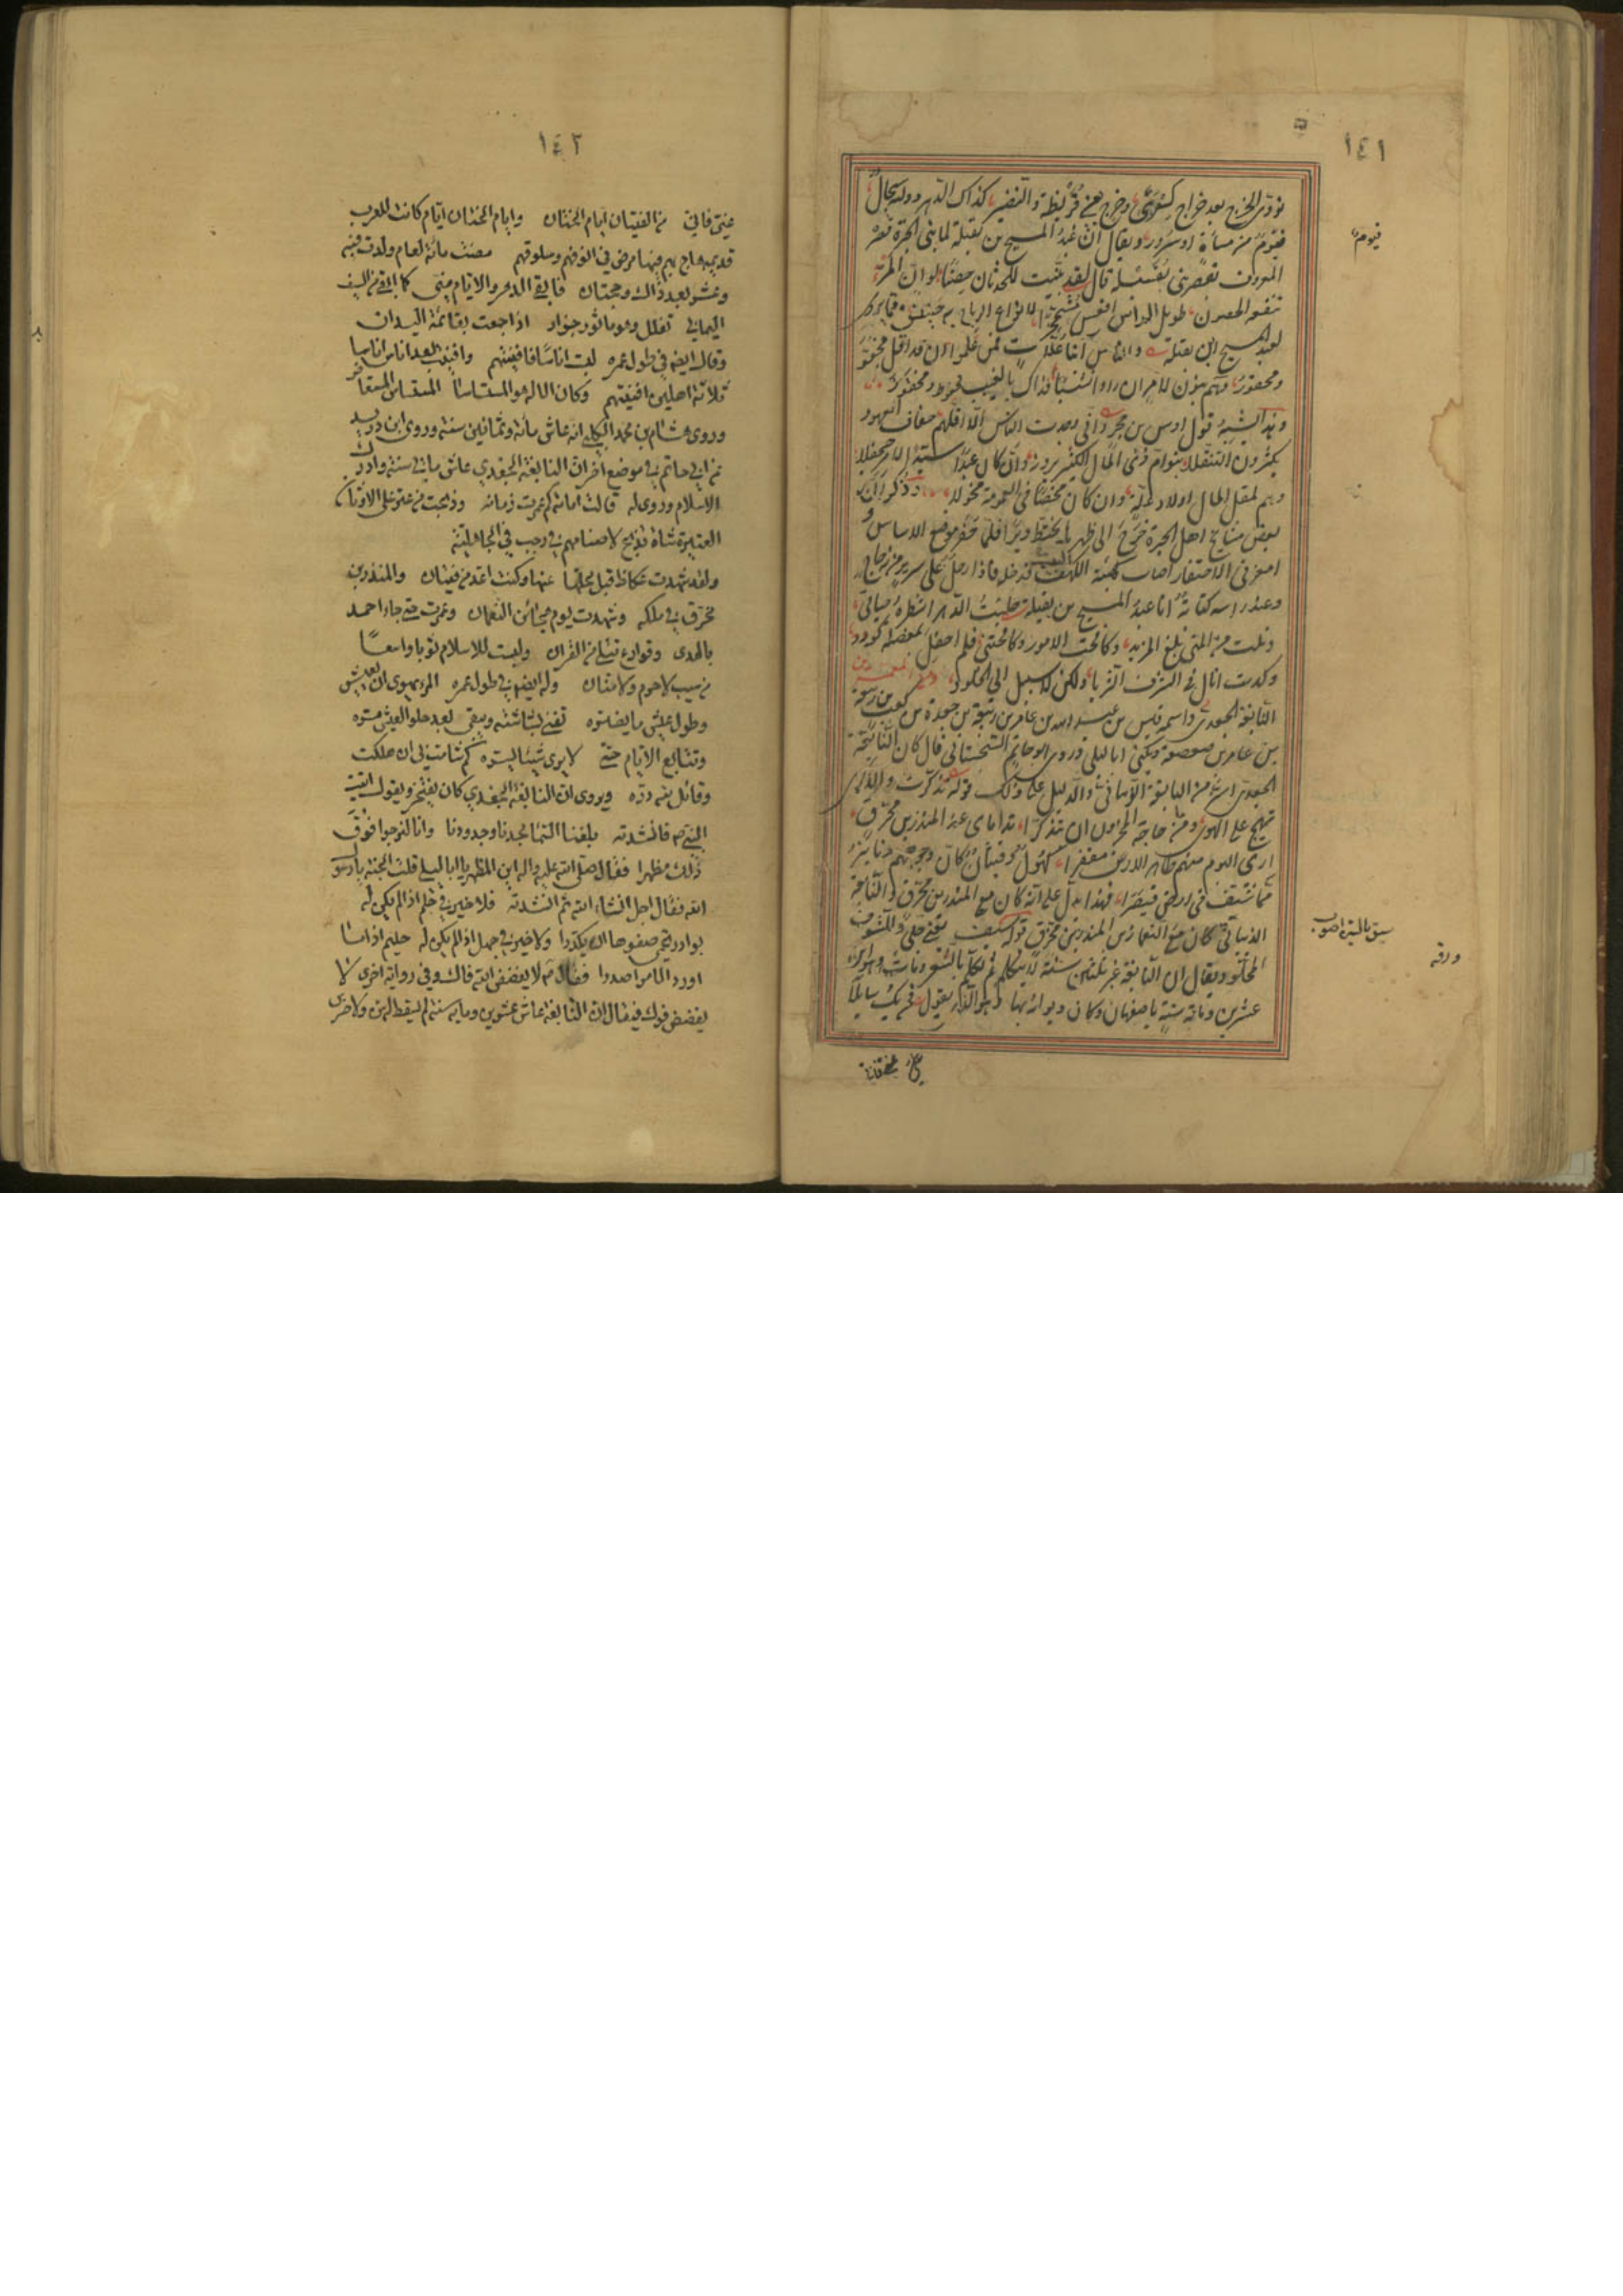 ١٤١
نؤدي الخرج بعد خراج كسرى وخرج بني قريظة والنضير كذاك الدهر دولته سجال
فيوم من مساءة او سرور ويقال ان عبد المسيح بن بقيلة لما بنى بالحيرة قصره
المعروف بقصر بني بقيلة قال لقد بنيت للحدثان حصنا لو ان المرء
تنفعه الحصون طويل الراس اقعس مشمخرا لانواع الرياح به حنين ومما يروى
لعبد المسيح ابن بقيلة والناس ابناء علات فمن علموا ان قد اقل فمجفو
ومحقور وهم بنون لام ان راوا نشبا فذاك بالغيب محفوظ ومخفور
وهذا يشبه قول اوس بن حجر واني وجدت الناس الا اقلهم خفاف العهود
يكثرون التنقلا بنو ام ذي المال الكثير يرونه وان كان عبدا سيد الامر جحفلا
وهم لمقل المال اولاد علة وان كان محضا في العمومة مخولا وذكر ان
بعض مشايخ اهل الحيرة خرج الى ظهرها يختط ديرا فلما حفر موضع الاساس و
امعن في الاحتفار اصاب كهيئة البيت فدخله فاذا رجل على سرير من زجاج
وعند راسه كتابة انا عبد المسيح بن بقيلة حلبت الدهر اشطره حياتي
ونلت من المنى بلغ المزيد وكافحت الامور وكافحتني فلم احفل بمعضلة كؤود
وكدت انال في الشرف الثريا ولكن لا سبيل الى الخلود ومن المعمرين
النابغة الجعدي واسمه قيس بن عبد الله بن عامر بن ربيعة بن جعدة بن كعب بن ربيعة
بن عامر بن صعصعة ويكنى ابا ليلى وروى ابو حاتم السجستاني قال كان النابغة
الجعدي اسن من النابغة الذبياني والدليل على ذلك قوله تذكرت والذكرى
تهيج على الهوى ومن حاجة المحزون ان يتذكرا نداماي عند المنذر بن محرق
ارى اليوم منهم ظاهر الارض مقفرا كهول وفتيان كان وجوههم دنانير
مما شيف في ارض قيصرا فهذا يدل على انه كان مع المنذر بن محرق والنابغة
الذبياني كان مع النعمان بن المنذر بن محرق قوله شيف يعني جلى والمشوف
المجلو ويقال ان النابغة غبر ثلثين سنة لا يتكلم ثم تكلم بالشعر ومات وهو ابن
عشرين ومائة سنة باصفهان وكان ديوانه بها وهو الذي يقول فمن يك سايلا
عني
فيوم
١٤٢
عني فاني من الفتيان ايام الخنان وايام الخنان ايام كانت للعرب
قديمة هاج بهم فيها مرض في انوفهم وحلوقهم مضت مائة لعام ولدت فيه
وعشر بعد ذاك وحجتان فابقى الدهر والايام مني كما ابقى من السيف
اليماني تفلل وهو ماثور جراز اذا جمعت بقائمة اليدان
وقال ايضا في طول عمره لبست اناسا فافنيتهم وافنيت بعد اناس اناسا
ثلاثة اهلين افنيتهم وكان الاله هو المستاسا المستاس المستعاض
وروى هشام بن محمد الكلبي انه عاش مائة وثمانين سنة وروى ابن دريد
عن ابي حاتم في موضع اخر ان النابغة الجعدي عاش مايتي سنة وادرك
الاسلام وروى له قالت امامة كم عمرت زمانة وذبحت من عتر على الاوثان
العتيرة شاة تذبح لاصنامهم في رجب في الجاهلية
ولقد شهدت عكاظ قبل محلها عنها وكنت اعد من فتيان والمنذر بن
محرق في ملكه وشهدت يوم هجائن النعمان وعمرت حتى جاء احمد
بالهدى وقوارع تتلى من القران ولبست للاسلام ثوبا واسعا
من سيب لا حرم ولا منان وله ايضا في طول عمره المرء يهوى ان يعيش
وطول عيش ما يضره تفنى بشاشته ويبقى بعد حلو العيش مره
وتتتابع الايام حتى لا يرى شيئا يسره كم شامت بي ان هلكت
وقائل لله دره ويروى ان النابغة الجعدي كان يفتخر ويقول اتيت
النبي ص فانشدته بلغنا السما مجدنا وجدودنا وانا لنرجوا فوق
ذلك مظهرا فقال صلى الله عليه واله اين المظهر يا ابا ليلى قلت الجنة يا رسول
الله فقال اجل انشاء الله ثم انشدته فلا خير في حلم اذا لم يكن له
بوادر تحمي صفوها ان يكدرا ولا خير في جهل اذا لم يكن له حليم اذا ما
اورد الامر اصدرا فقال ص لا يفضض الله فاك وفي رواية اخرى لا
يفضض فوك فيقال ان النابغة عاش عشرين وماية سنة لم يسقط له سن ولا ضرس